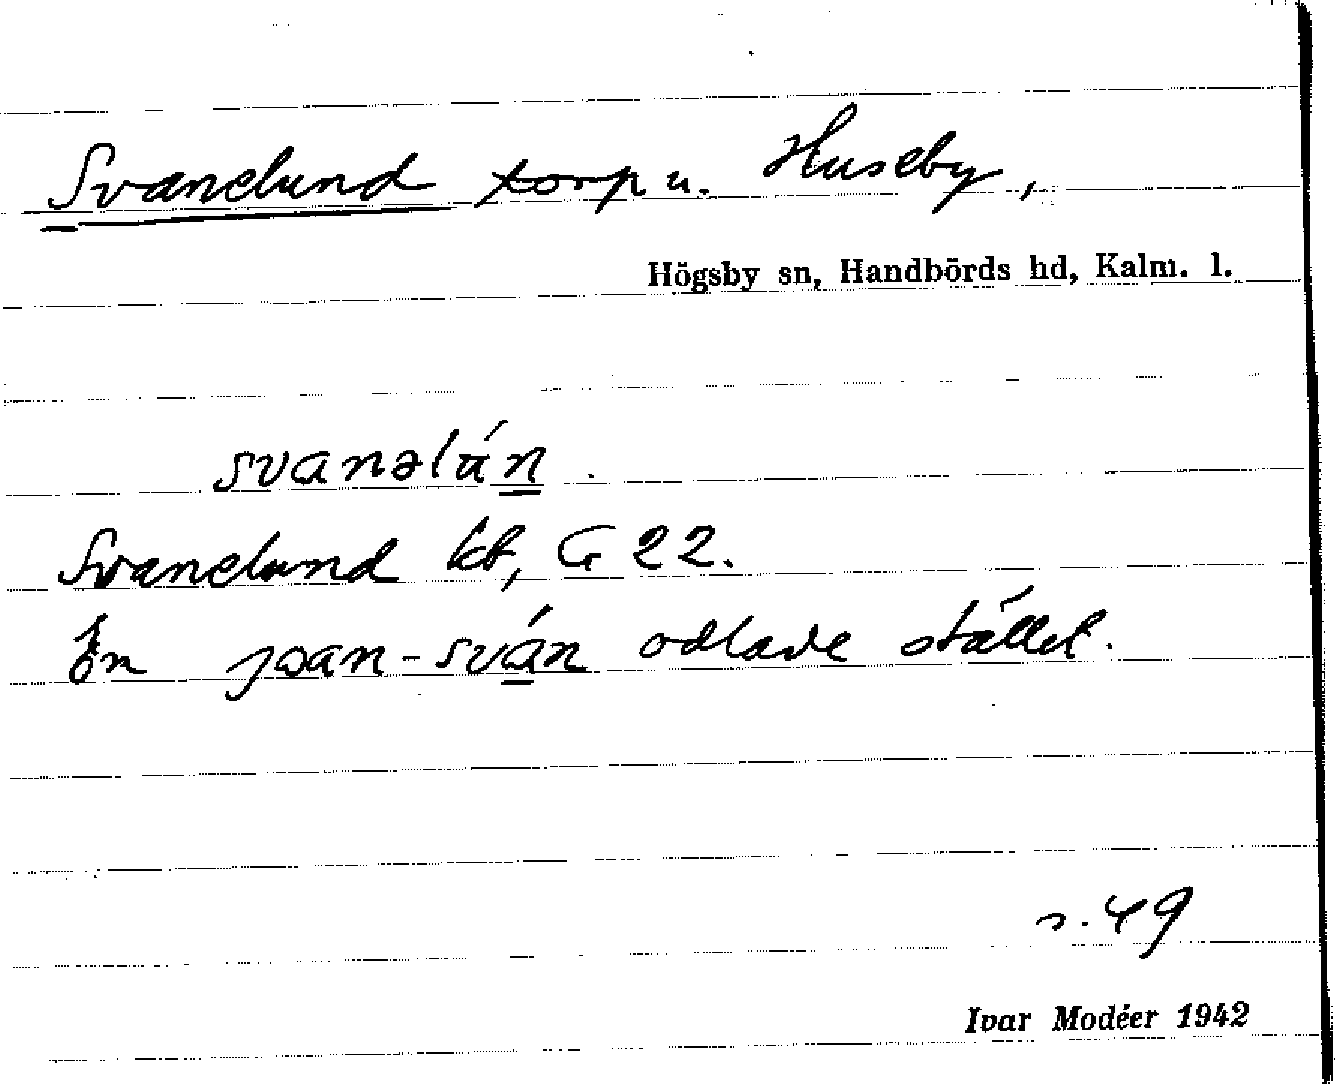 Svanelund torp u. Huseby,
Högsby sn, Handbörds hd, Kalm. l.
svanəlún
Svanelund kt, G 22.
En joan-sván odlade stället.
s. 49
Ivar Modéer 1942